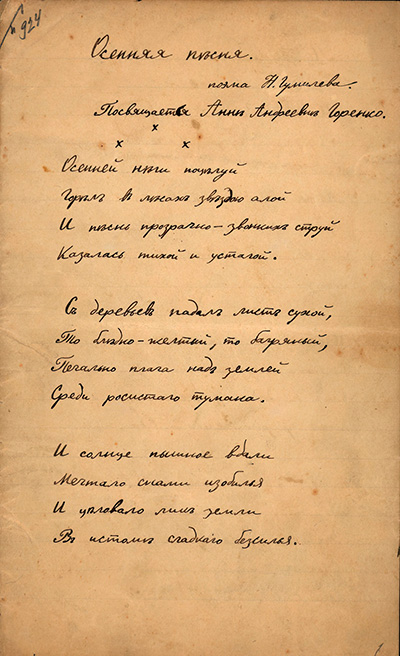 924
Осенняя пѣсня.
поэма Н. Гумилева.
Посвящается Аннѣ Андреевнѣ Горенко.
х
х х
Осенней нѣги поцѣлуй
Горѣлъ въ лѣсахъ звѣздою алой
И пѣснь прозрачно-звонкихъ струй
Казалась тихой и усталой.
Съ деревьевъ падалъ листъ сухой,
То блѣдно-желтый, то багряный,
Печально плача надъ землей
Среди росистаго тумана.
И солнце пышное вдали
Мечтало снами изобилья
И цѣловало ликъ земли
Въ истомѣ сладкаго безсилья.